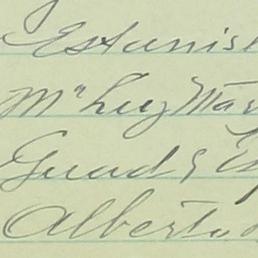 Estanis
Mª Luz Mar
Guad
Alberto